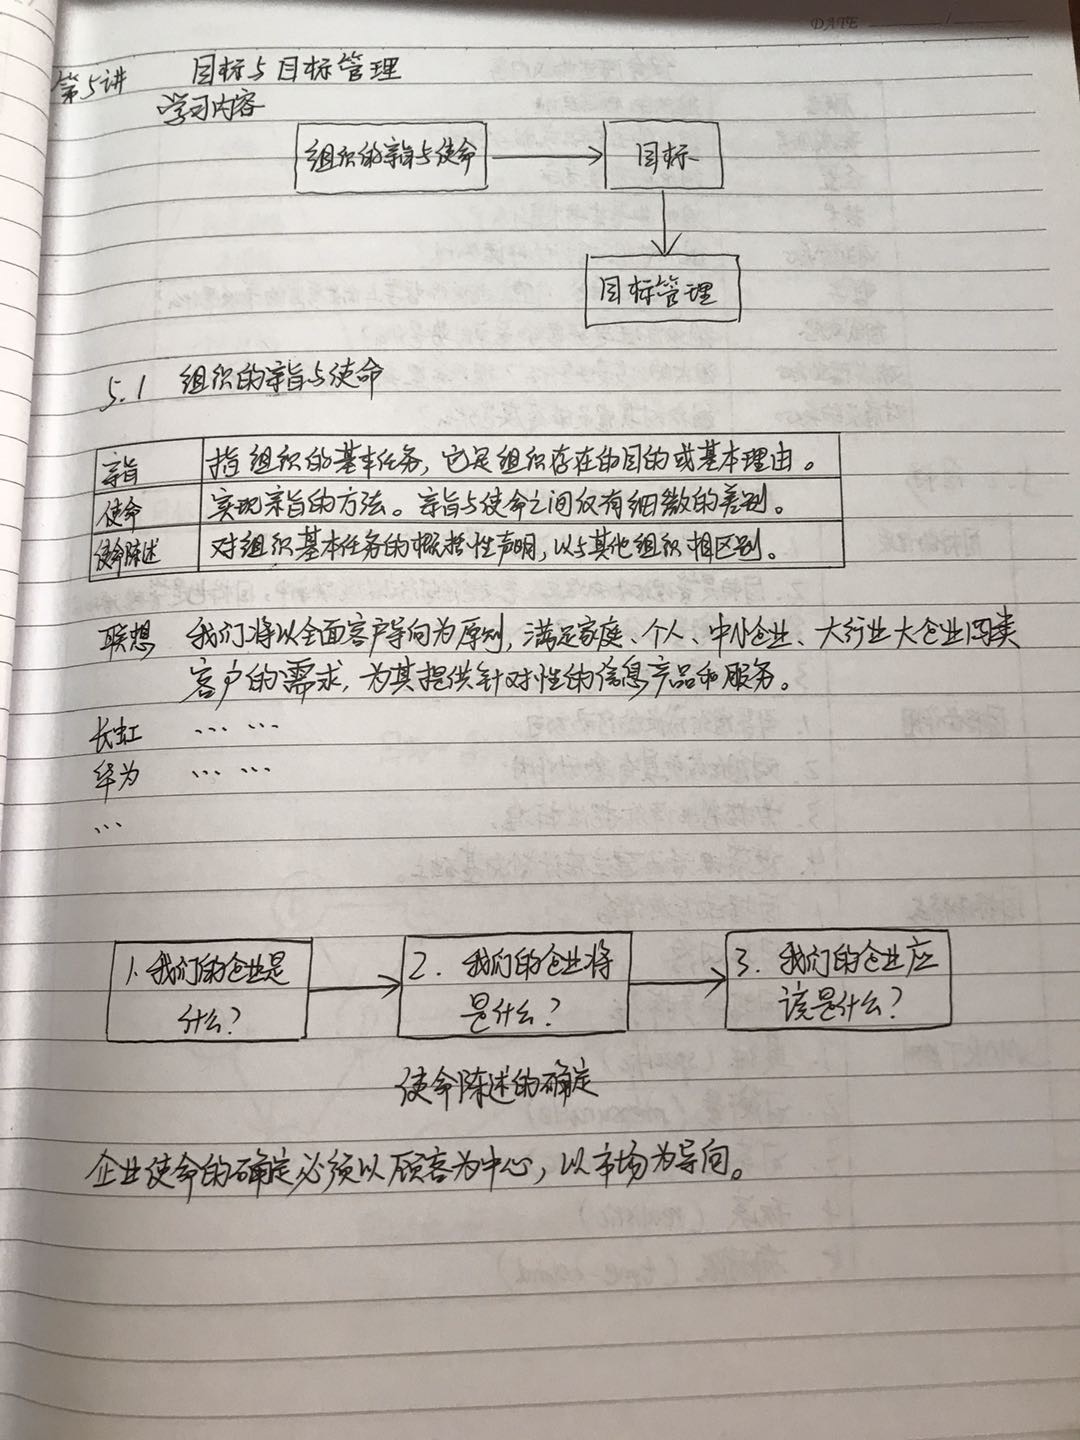 DATE
第5讲 目标与目标管理
学习内容
组织的宗旨与使命 目标
目标管理
5.1 组织的宗旨与使命
宗旨 指组织的基本任务，它是组织存在的目的或基本理由。
使命 实现宗旨的方法。宗旨与使命之间仅有细微的差别。
使命陈述 对组织基本任务的概括性声明，以与其他组织相区别。
联想 我们将以全面客户导向为原则，满足家庭、个人、中小企业、大行业大企业四类
客户的需求，为其提供针对性的信息产品和服务。
长虹 …… ……
华为 …… ……
…
1. 我们的企业是 2. 我们的企业将 3. 我们的企业应
什么？ 是什么？ 该是什么？
使命陈述的确定
企业使命的确定必须以顾客为中心，以市场为导向。